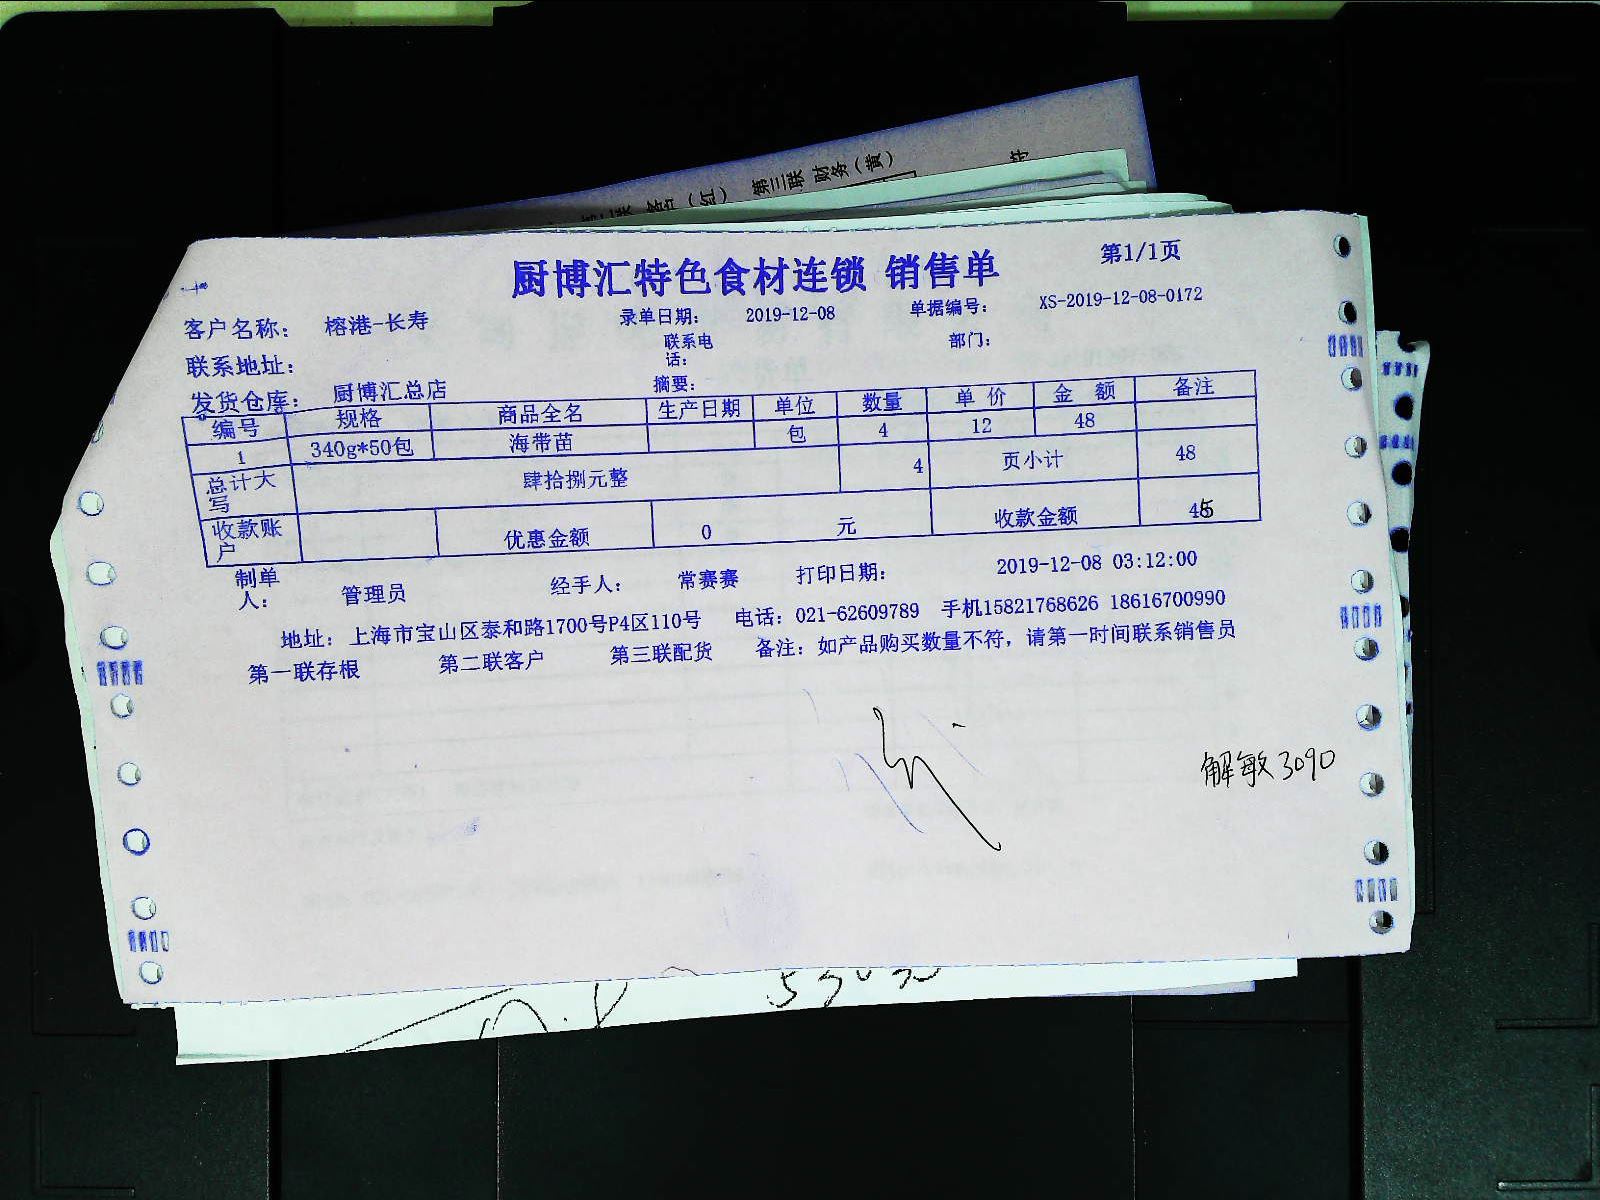 第三联 财务（黄）
（红）
厨博汇特色食材连锁 销售单
第1/1页
客户名称： 榕港-长寿 录单日期： 2019-12-08 单据编号： XS-2019-12-08-0172
联系地址： 联系电话： 部门：
发货仓库： 厨博汇总店 摘要：
编号 规格 商品全名 生产日期 单位 数量 单价 金额 备注
1 340g*50包 海带苗 包 4 12 48
总计大写 肆拾捌元整 4 页小计 48
收款账户 优惠金额 0 元 收款金额
制单人： 管理员 经手人： 常赛赛 打印日期： 2019-12-08 03:12:00
地址：上海市宝山区泰和路1700号P4区110号 电话：021-62609789 手机15821768626 18616700990
第一联存根 第二联客户 第三联配货 备注：如产品购买数量不符，请第一时间联系销售员
解敏3090